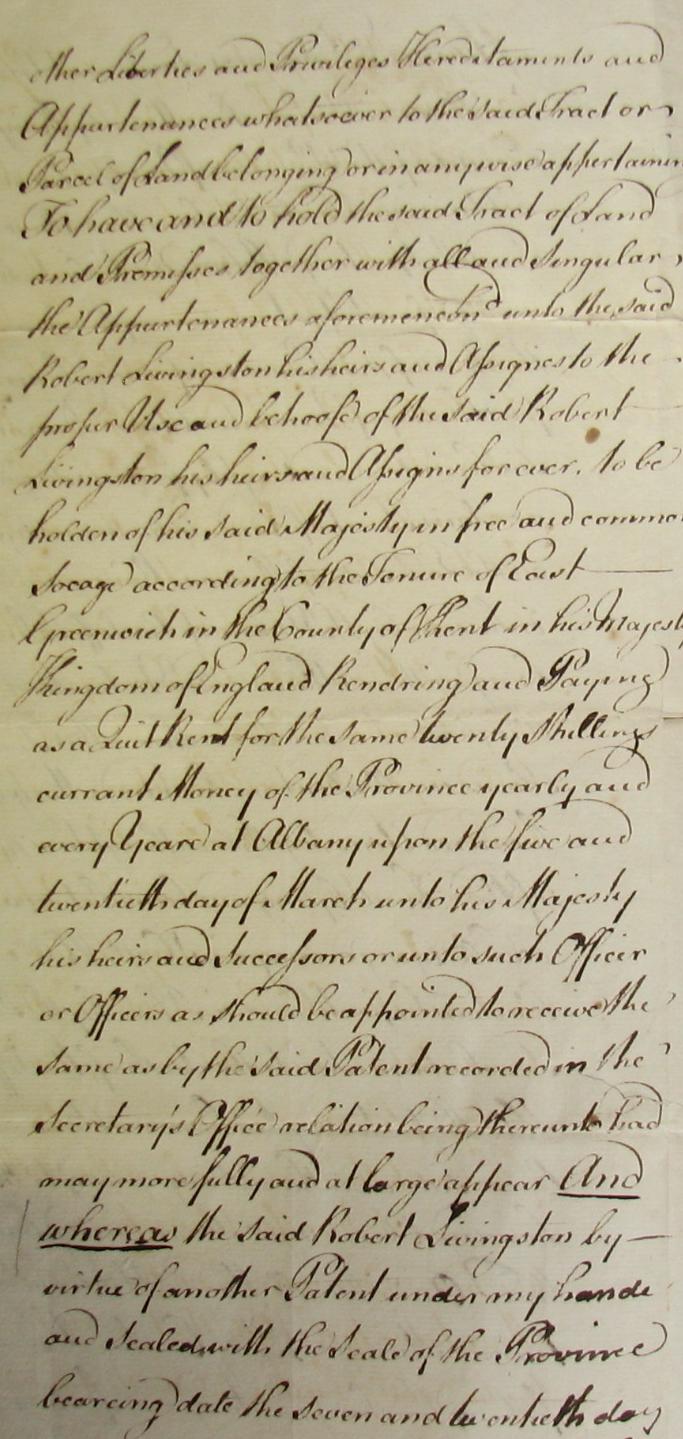 other Liberties and Priviliges Hereditaments and
Appurtenances whatsoever to the said Tract or
Parcel of Land belonging or in any wise appertainin
To have and to hold the said Tract of Land
and Premisses together with all and Singular
the Appurtenances aforemencond unto the said
Robert Livingston his heirs and Assignes to the
proper Use and behoofe of the said Robert
Livingston his heirs and Assigns for ever. to be
holden of his said Majesty in free and commo
Socage according to the Tenure of East
Greenwich in the County of Kent in his Majest
Kingdom of England Rendring and Paying
as a Quit Rent for the same twenty Shillings
currant Money of the Province yearly and
every Yeare at Albany upon the five and
twentieth day of March unto his Majesty
his heirs and Successors or unto such Officer
or Officers as should be appointed to receive the
same as by the said Patent recorded in the
Secretary's Office relation being thereunto had
may more fully and at large appear And
whereas the said Robert Livingston by
virtue of another Patent under my hande
and sealed with the Seale of the Province
beareing date the seven and twentieth day